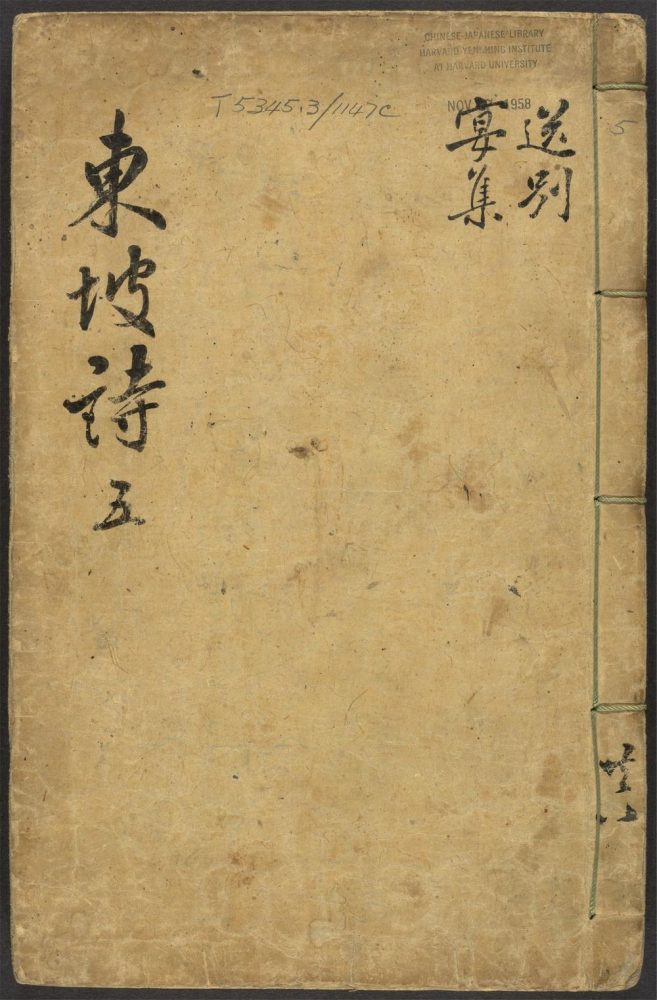 CHINESE-JAPANESE LIBRARY
HARVARD-YENCHING INSTITUTE
AT HARVARD UNIVERSITY
NOV 1958
T 5345.3/1147c
5
送別
宴集
東坡詩五